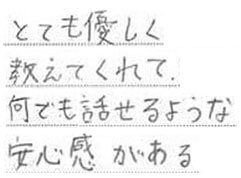 とても優しく
教えてくれて.
何でも話せるような
安心感がある